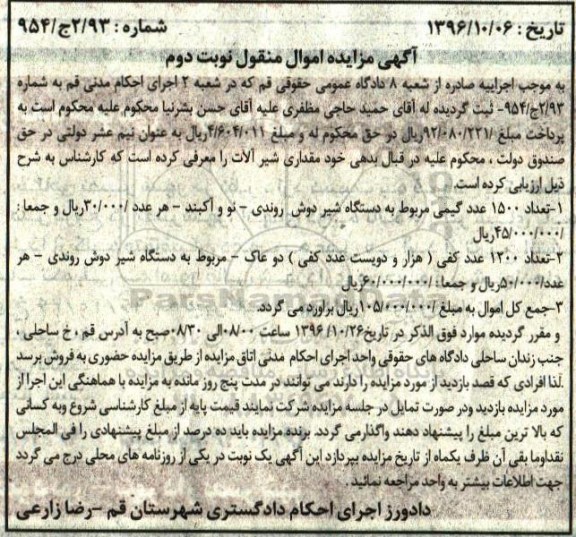 تاریخ : ۱۳۹۶/۱۰/۰۶ شماره : ۲/۹۳ج/۹۵۴
آگهی مزایده اموال منقول نوبت دوم
به موجب اجراییه صادره از شعبه ۸ دادگاه عمومی حقوقی قم که در شعبه ۲ اجرای احکام مدنی قم به شماره
۲/۹۳ج/۹۵۴- ثبت گردیده له آقای حمید حاجی مظفری علیه آقای حسن بشرنیا محکوم علیه محکوم است به
پرداخت مبلغ /۹۲/۰۸۰/۲۲۱ریال در حق محکوم له و مبلغ ۴/۶۰۴/۰۱۱ریال به عنوان نیم عشر دولتی در حق
صندوق دولت ، محکوم علیه در قبال بدهی خود مقداری شیر آلات را معرفی کرده است که کارشناس به شرح
ذیل ارزیابی کرده است.
۱-تعداد ۱۵۰۰ عدد گیمی مربوط به دستگاه شیر دوش روندی - نو و آکبند - هر عدد /۳۰/۰۰۰ریال و جمعا:
/۴۵/۰۰۰/۰۰۰ریال
۲-تعداد ۱۲۰۰ عدد کفی ( هزار و دویست عدد کفی ) دو عاک - مربوط به دستگاه شیر دوش روندی - هر
عدد/۵۰/۰۰۰ریال و جمعا: /۶۰/۰۰۰/۰۰۰ریال
۳-جمع کل اموال به مبلغ /۱۰۵/۰۰۰/۰۰۰ریال براورد می گردد.
و مقرر گردیده موارد فوق الذکر در تاریخ۱۳۹۶/۱۰/۲۶ ساعت ۰۸/۰۰الی ۰۸/۳۰صبح به آدرس قم ، خ ساحلی ،
جنب زندان ساحلی دادگاه های حقوقی واحد اجرای احکام مدنی اتاق مزایده از طریق مزایده حضوری به فروش برسد
.لذا افرادی که قصد بازدید از مورد مزایده را دارند می توانند در مدت پنج روز مانده به مزایده با هماهنگی این اجرا از
مورد مزایده بازدید ودر صورت تمایل در جلسه مزایده شرکت نمایند قیمت پایه از مبلغ کارشناسی شروع وبه کسانی
که بالا ترین مبلغ را پیشنهاد دهند واگذارمی گردد. برنده مزایده باید ده درصد از مبلغ پیشنهادی را فی المجلس
نقداوما بقی آن ظرف یکماه از تاریخ مزایده بپردازد این آگهی یک نوبت در یکی از روزنامه های محلی درج می گردد
جهت اطلاعات بیشتر به واحد مراجعه نمائید .
دادورز اجرای احکام دادگستری شهرستان قم -رضا زارعی